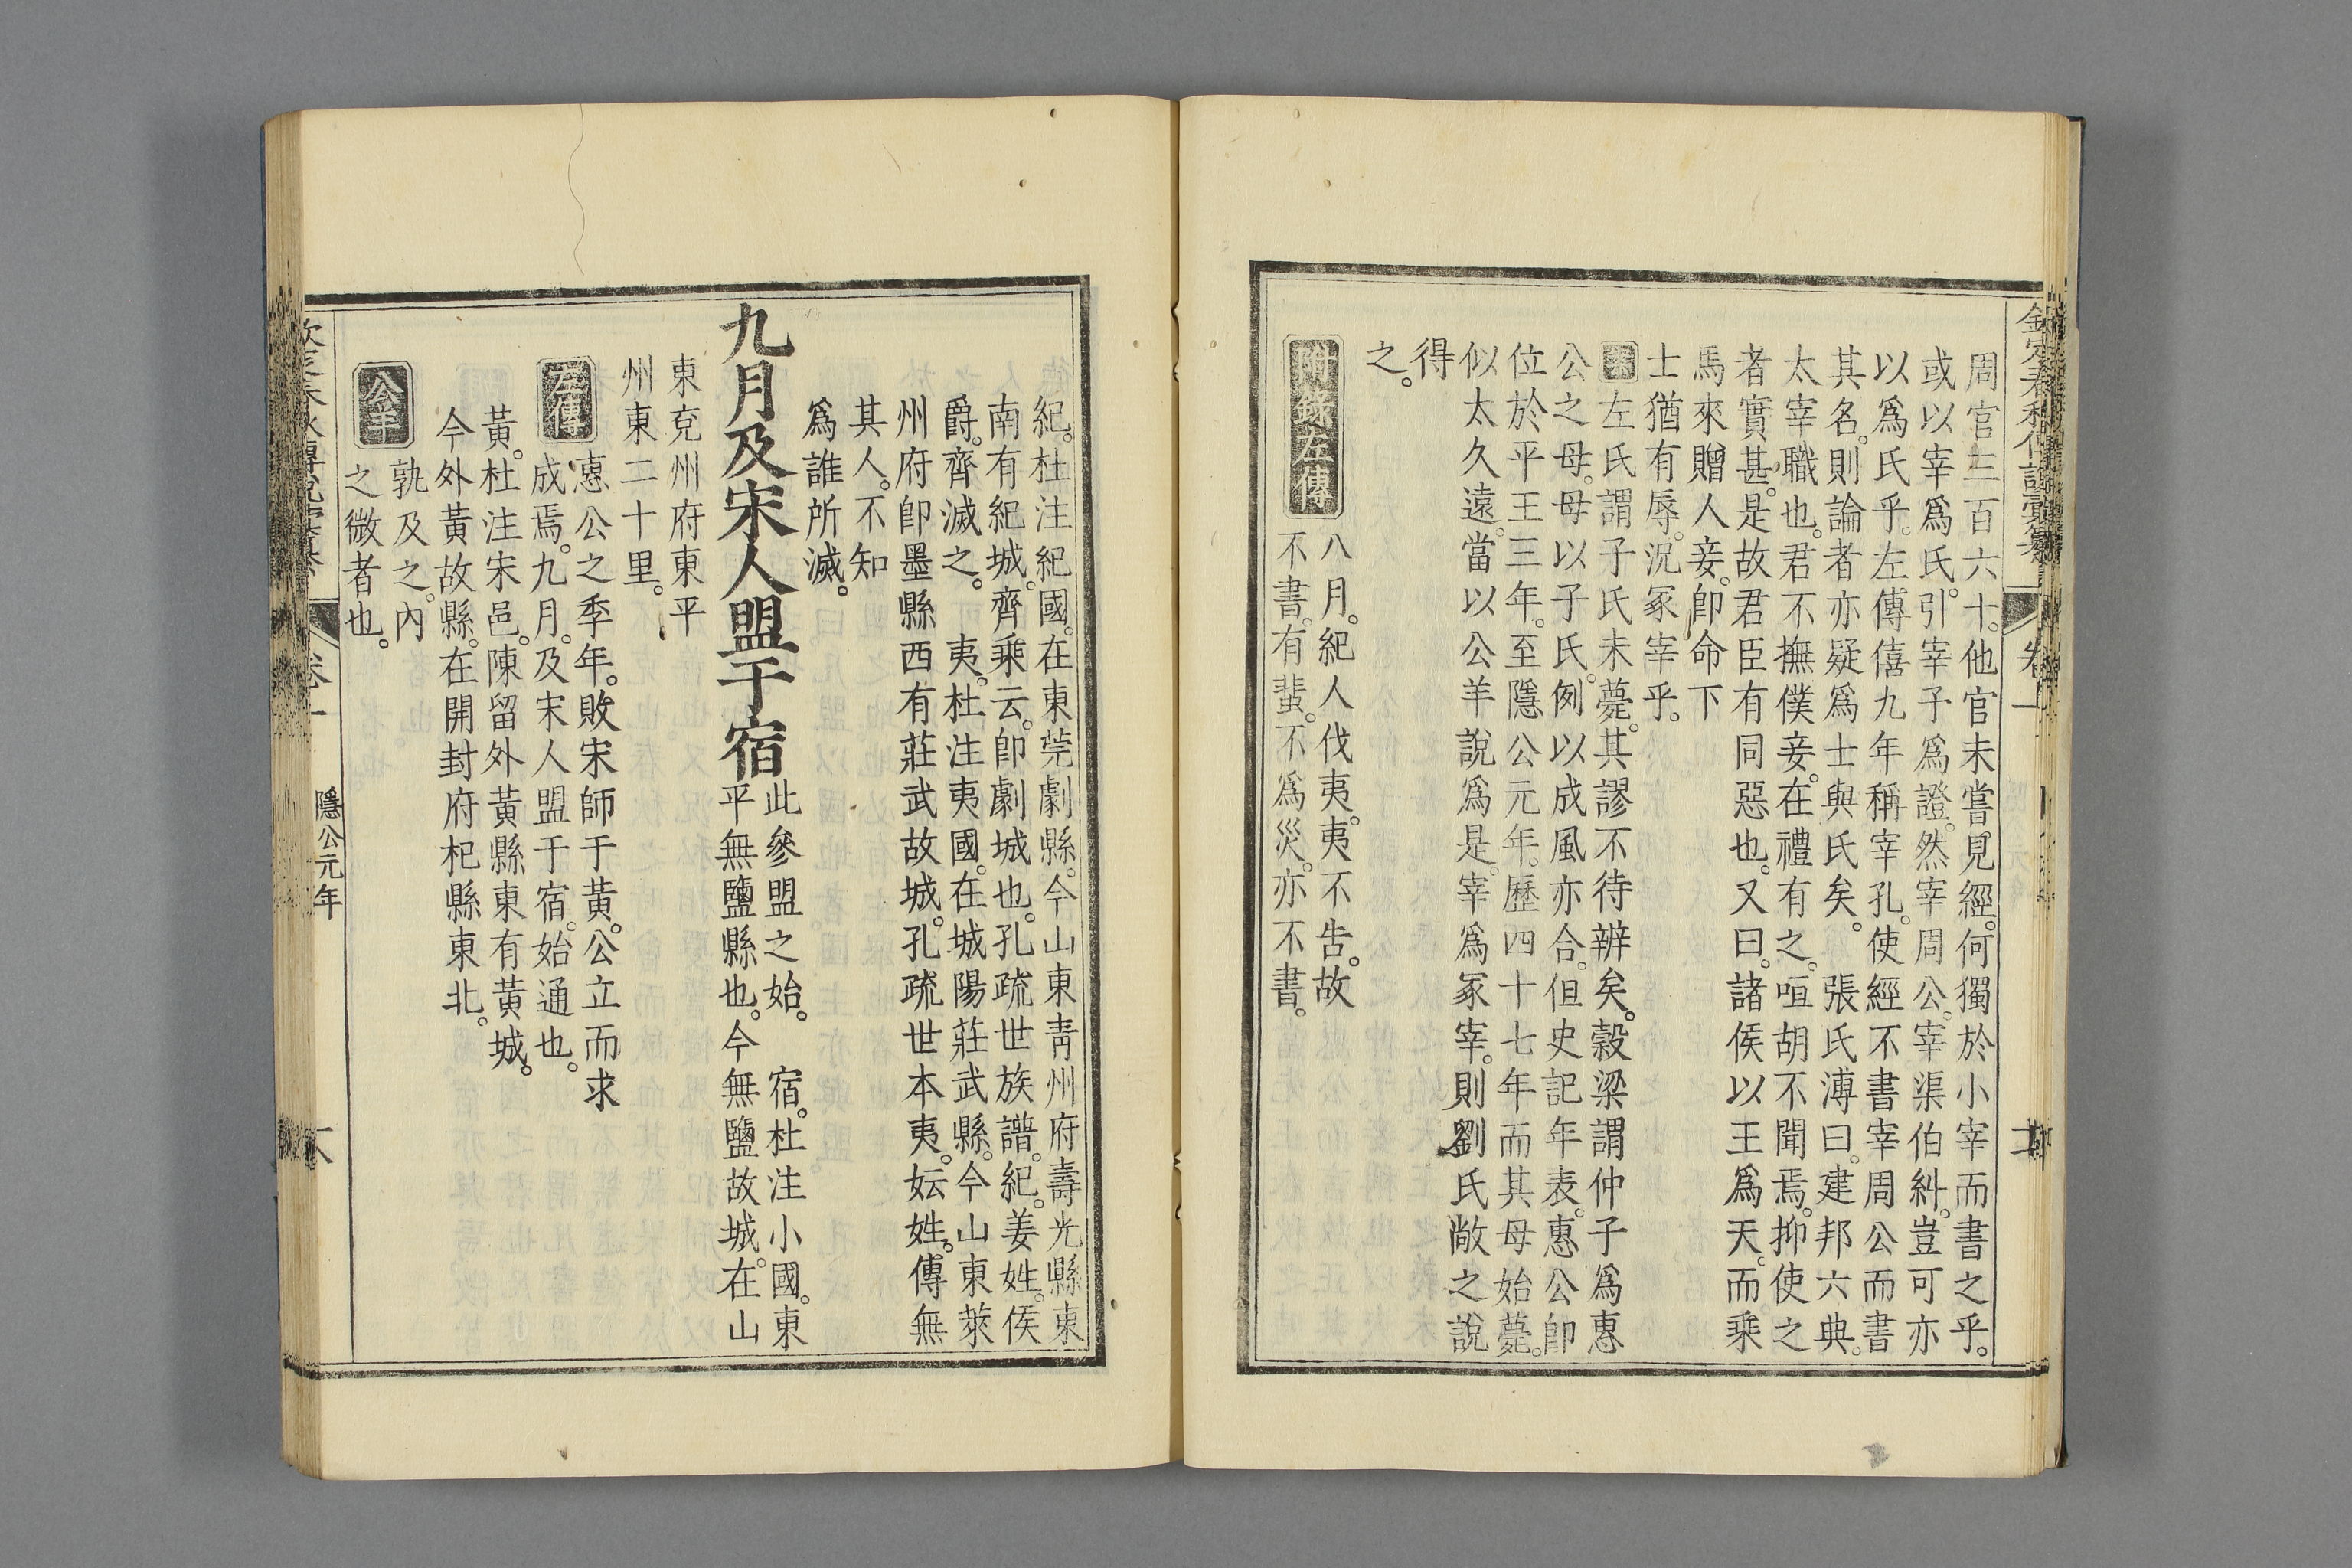 周官三百六十。他官未嘗見經。何獨於小宰而書之乎。
或以宰爲氏。引宰子爲證。然宰周公。宰渠伯糾。豈可亦
以爲氏乎。左傳僖九年稱宰孔。使經不書宰周公而書
其名。則論者亦疑爲士與氏矣。 張氏溥曰。建邦六典。
太宰職也。君不撫僕妾。在禮有之。咺胡不聞焉。抑使之
者實甚。是故君臣有同惡也。又曰。諸侯以王爲天。而乘
馬來賵人妾。卽命下
士猶有辱。況冢宰乎。
案左氏謂子氏未薨。其謬不待辨矣。穀梁謂仲子爲惠
公之母。母以子氏。例以成風亦合。但史記年表。惠公卽
位於平王三年。至隱公元年。歷四十七年而其母始薨。
似太久遠。當以公羊說爲是。宰爲冢宰。則劉氏敞之說
得
之。
附錄左傳
八月。紀人伐夷。夷不告。故
不書。有蜚。不爲災。亦不書。
卷一
紀。杜注紀國。在東莞劇縣。今山東靑州府壽光縣東
南有紀城。齊乘云。卽劇城也。孔疏世族譜。紀。姜姓。侯
爵。齊滅之。 夷。杜注夷國。在城陽莊武縣。今山東萊
州府卽墨縣西有莊武故城。孔疏世本夷。妘姓。傳無
其人。不知
爲誰所滅。
九月及宋人盟于宿
此參盟之始。 宿。杜注小國。東
平無鹽縣也。今無鹽故城。在山
東兗州府東平
州東二十里。
左傳
惠公之季年。敗宋師于黃。公立而求
成焉。九月。及宋人盟于宿。始通也。
黃。杜注宋邑。陳留外黃縣東有黃城。
今外黃故縣。在開封府杞縣東北。
公羊
孰及之。內
之微者也。
隱公元年